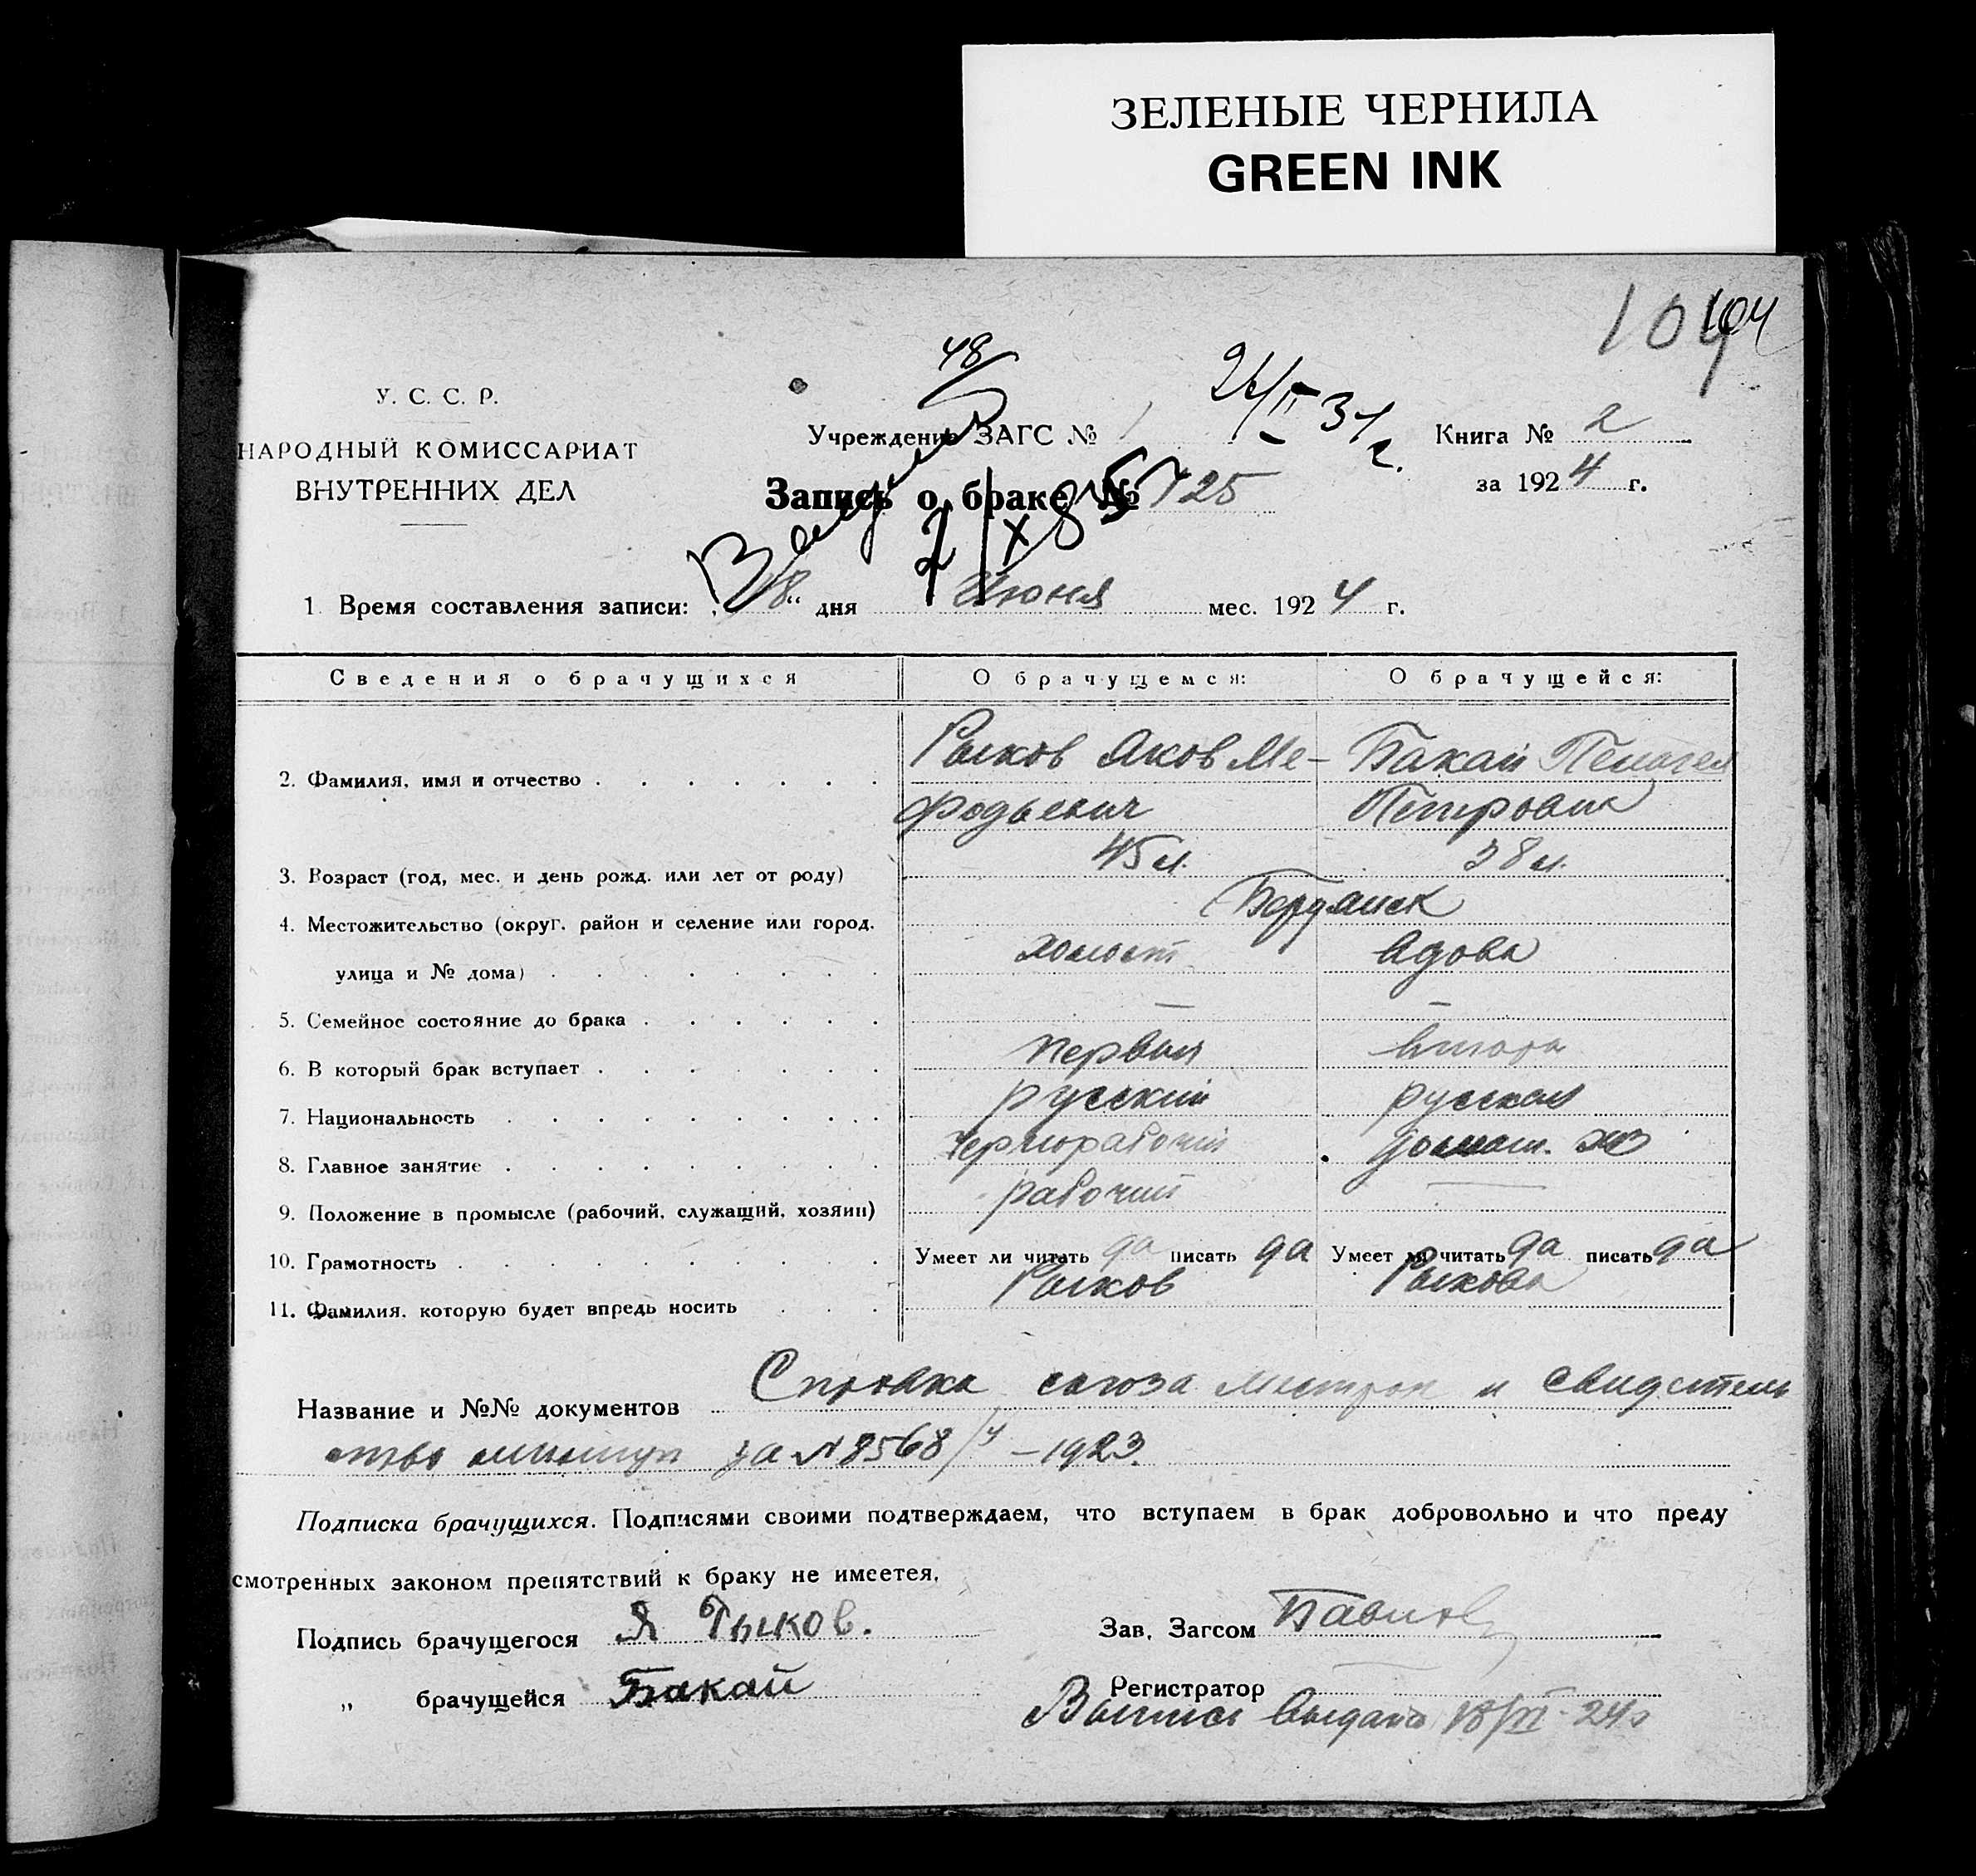 ЗЕЛЕНЫЕ ЧЕРНИЛА
GREEN INK
104
104
48
У. С. С. Р.
НАРОДНЫЙ КОМИССАРИАТ
ВНУТРЕННИХ ДЕЛ
Учреждение ЗАГС № 1
Книга № 2
за 1924 г.
Запись о браке № 125
2/X 85
1. Время составления записи: „18“ дня Июня мес. 1924 г.
Сведения о брачущихся О брачущемся: О брачущейся:
Рыков Яков Ме- Бакай Пелагея
2. Фамилия, имя и отчество
фодьевич Петровна
3. Возраст (год, мес. и день рожд. или лет от роду) 45 л. 38 л.
Бердянск
4. Местожительство (округ, район и селение или город,
холост вдова
улица и № дома)
5. Семейное состояние до брака — —
6. В который брак вступает первый второй
7. Национальность русский русская
8. Главное занятие чернорабочий домаш. хоз
9. Положение в промысле (рабочий, служащий, хозяин) рабочий —
10. Грамотность Умеет ли читать да писать да Умеет ли читать да писать да
11. Фамилия, которую будет впредь носить Рыков Рыкова
Название и №№ документов Справка союза и свидетель
ство за № 8568/у – 1923.
Подписка брачущихся. Подписями своими подтверждаем, что вступаем в брак добровольно и что преду
смотренных законом препятствий к браку не имеется,
Подпись брачущегося Я Рыков. Зав. Загсом
„ брачущейся Бакай Регистратор
Выпись выдана 18/VI-24 г